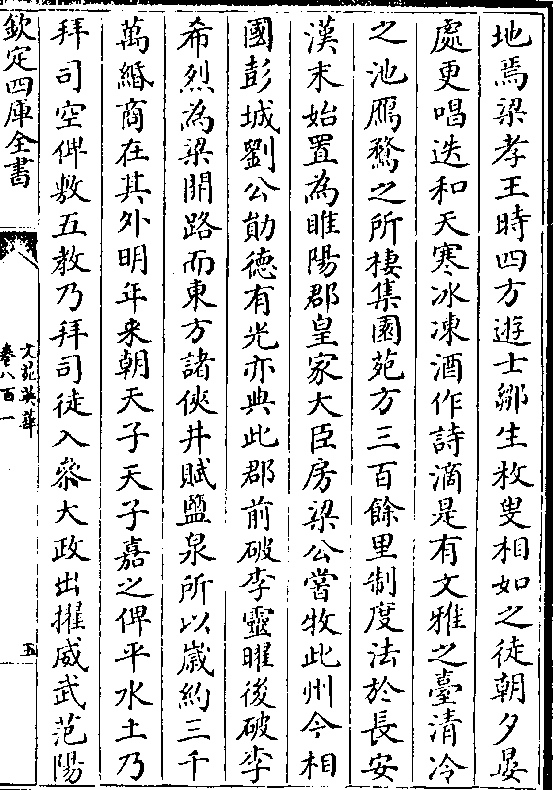 地焉梁孝王時四方遊士鄒生枚叟相如之徒朝夕晏
處更唱迭和天寒冰凍酒作詩滴是有文雅之臺清冷
之池鴈鶩之所棲集園苑方三百餘里制度法於長安
漢末始置為睢陽郡皇家大臣房梁公嘗牧此州今相
國彭城劉公勛德有光亦典此郡前破李靈曜後破李
希烈為梁開路而東方諸侠井賦鹽泉所以嵗約三千
萬緡商在其外明年来朝天子天子嘉之俾平水土乃
拜司空俾敷五教乃拜司徒入叅大政出擢威武范陽
欽定四庫全書
文苑英華
卷八百一
五